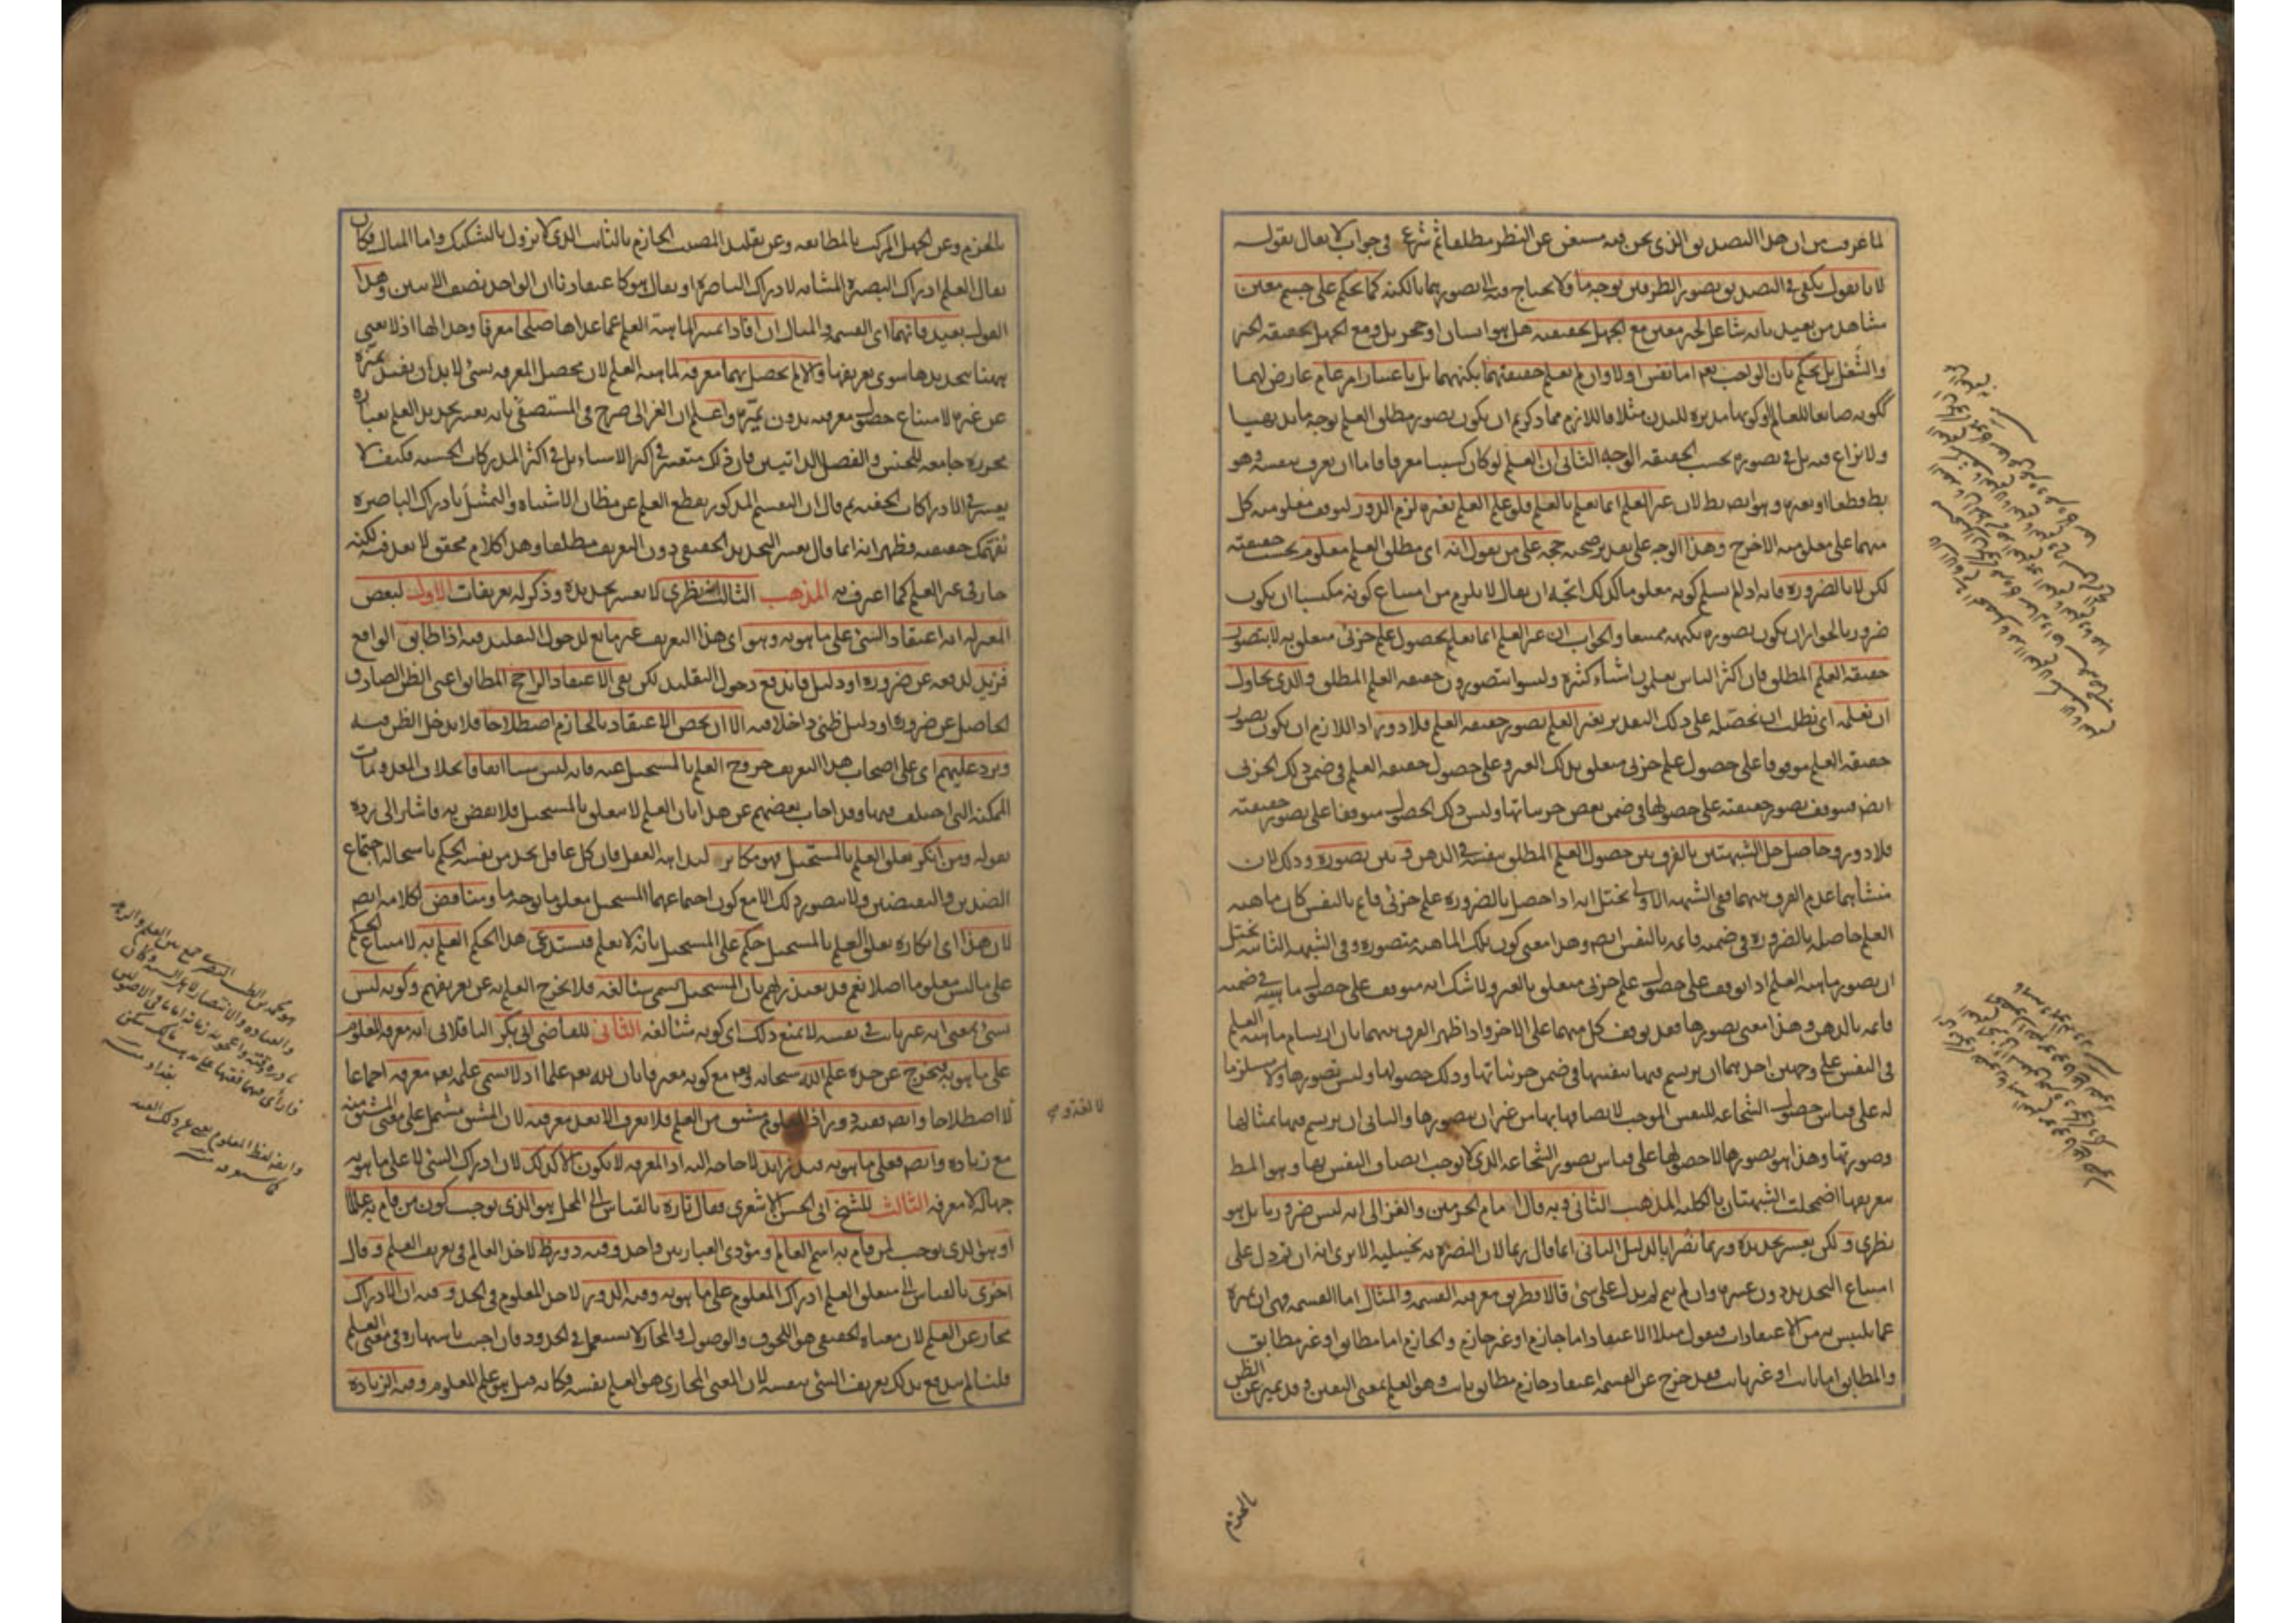 لما عرفت من ان هذا التصديق الذى نحن فيه مستغن عن النظر مطلقا ثم شرع فى جواب لا يقال بقوله
لانا نقول يكفى فى التصديق تصور الطرفين بوجه ما ولا يحتاج فيه الى تصورهما بالكنه كما يحكم على جسم معين
مشاهد من بعيد بانه شاغل لحيز معين مع الجهل بحقيقته هل هو انسان او حجر بل ومع الجهل بحقيقة الحيز
والشغل بل يحكم بان الواجب تعم اما نفس اولا وان لم يعلم حقيقتهما بكنههما بل باعتبار امر عام عارض لهما
ككونه صانعا للعالم وكونها مدبرة للبدن مثلا فاللازم مما ذكرتم ان يكون تصور مطلق العلم بوجه ما بديهيا
ولا نزاع فيه بل فى تصوره بحسب الحقيقة الوجه الثانى ان العلم لو كان كسبيا معرفا فاما ان يعرف بنفسه وهو
بط قطعا او بغيره وهو ايضا بط لان غير العلم انما يعلم بالعلم فلو علم العلم بغيره لزم الدور لتوقف معلومية كل
منهما على معلومية الاخر وهذا الوجه على تقدير صحته حجة على من يقول انه اى مطلق العلم معلوم بحسب حقيقته
لكن لا بالضرورة فانه اذا لم يسلم كونه معلوما كذلك اتجه ان يقال لا يلزم من امتناع كونه مكتسبا ان يكون
ضروريا لجواز ان يكون تصوره بكنهه ممتنعا والجواب ان غير العلم انما يعلم بحصول علم جزئى متعلق به لا بتصور
حقيقة العلم المطلق فان اكثر الناس يعلمون اشياء كثيرة وليسوا يتصورون حقيقة العلم المطلق والذى يحاول
ان نعلمه اى نطلب ان نحصله على ذلك التقدير بغير العلم تصور حقيقة العلم فلا دور اذ اللازم ان يكون تصور
حقيقة العلم موقوفا على حصول علم جزئى متعلق بذلك الغير وعلى حصول حقيقة العلم فى ضمن ذلك الجزئى
ايضا فيتوقف تصور حقيقته على حصولها فى ضمن بعض جزئياتها وليس ذلك الحصول متوقفا على تصور حقيقته
فلا دور وحاصل حل الشبهتين بالفرق بين حصول العلم المطلق بنفسه فى الذهن وبين تصوره وذلك لان
منشأهما عدم الفرق بينهما ففى الشبهة الاولى تخيل انه اذا حصل بالضرورة علم جزئى قائم بالنفس كان ماهية
العلم حاصلة بالضرورة فى ضمنه قائمة بالنفس ايضا وهذا معنى كون تلك الماهية متصورة وفى الشبهة الثانية تخيل
ان تصور ماهية العلم اذا توقف على حصول علم جزئى متعلق بالغير ولا شك انه متوقف على حصول ماهيته فى ضمنه
قائمة بالذهن وهذا معنى تصورها فقد توقف كل منهما على الاخر واذا ظهر الفرق بينهما بان ارتسام ماهية العلم
فى النفس على وجهين احدهما ان يرتسم فيها بنفسها فى ضمن جزئياتها وذلك حصولها وليس تصورها ولا مستلزما
له على قياس حصول الشجاعة للنفس الموجب لاتصافها بها من غير ان يتصورها والثانى ان يرتسم فيها بمثالها
وصورتها وهذا هو تصورها لا حصولها على قياس تصور الشجاعة الذى لا يوجب اتصاف النفس بها وهو المط
بتعريفها اضمحلت الشبهتان بالكلية المذهب الثانى وبه قال امام الحرمين والغزالى انه ليس ضروريا بل هو
نظرى ولكن يعسر تحديده وربما نصرا بالدليل الثانى انما قال ربما لان النصرة به تخييلية الا يرى انه ان تم دل على
امتناع التحديد دون عسره وان لم يتم لم يدل على شئ قالا وطريق معرفته القسمة والمثال اما القسمة فهى ان يميزه
عما يلتبس به من الاعتقادات فيقول مثلا الاعتقاد اما جازم او غير جازم والجازم اما مطابق او غير مطابق
والمطابق اما ثابت او غير ثابت فقد خرج عن القسمة اعتقاد جازم مطابق ثابت وهو العلم بمعنى اليقين وقد تميز عن الظن
بالجزم
بالجزم وعن الجهل المركب بالمطابقة وعن تقليد المصيب الجازم بالثابت الذى لا يزول بالتشكيك واما المثال فكان
يقال العلم ادراك البصيرة المشابه لادراك الباصرة او يقال هو كاعتقادنا ان الواحد نصف الاثنين وهذا
القول بعيد فانهما اى القسمة والمثال ان افادا تمييزا لماهية العلم عما عداها صلحا معرفا وحدا لها اذ لا يعنى
ههنا بتحديدها سوى تعريفها والا لم يحصل بهما معرفة لماهية العلم لان محصل المعرفة بشئ لا بد ان يفيد تميزه
عن غيره لامتناع حصول معرفته بدون تميزه واعلم ان الغزالى صرح فى المستصفى بانه يعسر تحديد العلم بعبارة
محررة جامعة للجنس والفصل الذاتيين فان ذلك متعسر فى اكثر الاشياء بل فى اكثر المدركات الحسية فكيف لا
يعسر فى الادراكات الخفية ثم قال ان التقسيم المذكور يقطع العلم عن مظان الاشتباه والتمثيل بادراك الباصرة
يفهمك حقيقته فظهر انه انما قال يعسر التحديد الحقيقى دون التعريف مطلقا وهذا كلام محقق لا بعد فيه لكنه
جار فى غير العلم كما اعترف به المذهب الثالث انه نظرى لا يعسر تحديده وذكر له تعريفات الاول لبعض
المعتزلة انه اعتقاد الشئ على ما هو به وهو اى هذا التعريف غير مانع لدخول التقليد فيه اذا طابق الواقع
فزيد لدفعه عن ضرورة او دليل فاندفع دخول التقليد لكن بقى الاعتقاد الراجح المطابق اعنى الظن الصادق
الحاصل عن ضرورة او دليل ظنى داخلا فيه الا ان يخص الاعتقاد بالجازم اصطلاحا فلا يدخل الظن فيه
ويرد عليهم اى على اصحاب هذا التعريف خروج العلم بالمستحيل عنه فانه ليس شيئا اتفاقا بخلاف المعدومات
الممكنة التى اختلف فيها وقد اجاب بعضهم عن هذا بان العلم لا يتعلق بالمستحيل فلا نقض به فاشار الى رده
بقوله ومن انكر تعلق العلم بالمستحيل فهو مكابر لبداهة العقل فان كل عاقل يجد من نفسه الحكم باستحالة اجتماع
الضدين والنقيضين ولا يتصور ذلك الا مع كون اجتماعهما المستحيل معلوما بوجه ما ومناقض لكلامه ايضا
لان هذا اى انكاره تعلق العلم بالمستحيل حكم على المستحيل بانه لا يعلم فيستدعى هذا الحكم العلم به لامتناع الحكم
على ما ليس معلوما اصلا نعم قد يعتذر لهم بان المستحيل يسمى شيئا لغة فلا يخرج العلم به عن تعريفهم وكونه ليس
شيئا بمعنى انه غير ثابت فى نفسه لا يمنع ذلك اى كونه شيئا لغة الثانى للقاضى ابى بكر الباقلانى انه معرفة المعلوم
على ما هو به فيخرج عن حده علم الله سبحانه وتعم مع كونه معترفا بان لله تعم علما اذ لا يسمى علمه تعم معرفة اجماعا
لا اصطلاحا وايضا ففيه دور اذ المعلوم مشتق من العلم فلا يعرف الا بعد معرفته لان المشتق مشتمل على معنى المشتق منه
مع زيادة وايضا فعلى ما هو به قيد زايد لا حاجة اليه اذ المعرفة لا تكون الا كذلك لان ادراك الشئ لا على ما هو به
جهالة لا معرفة الثالث للشيخ ابى الحسن الاشعرى فقال تارة بالقياس الى المحل هو الذى يوجب كون من قام به عالما
او هو الذى يوجب لمن قام به اسم العالم ومؤدى العبارتين واحد وفيه دور ظ لاخذ العالم فى تعريف العلم وقال
اخرى بالقياس الى متعلق العلم ادراك المعلوم على ما هو به وفيه الدور لاخذ المعلوم فى الحد وفيه ان الادراك
مجاز عن العلم لان معناه الحقيقى هو اللحوق والوصول والمجاز لا يستعمل فى الحدود فان اجيب باشتهاره فى معنى العلم
قلنا لم يندفع بذلك تعريف الشئ بنفسه لان المعنى المجازى هو العلم نفسه فكانه قيل هو علم المعلوم وفيه الزيادة